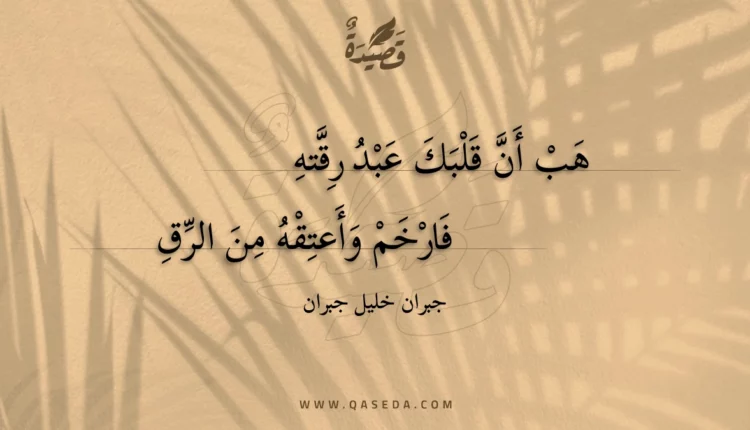 قَصِيدَةٌ
هَبْ أَنَّ قَلْبَكَ عَبْدُ رِقَّتهِ
فَارْخَمْ وَأَعتِقْهُ مِنَ الرِّقِ
جبران خليل جبران
WWW.QASEDA.COM